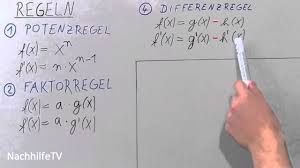 REGELN
① POTENZREGEL
f(x) = xⁿ
f'(x) = n · xⁿ⁻¹
② FAKTORREGEL
f(x) = a · g(x)
f'(x) = a · g'(x)
④ DIFFERENZREGEL
f(x) = g(x) - h(x)
f'(x) = g'(x) - h'(x)
NachhilfeTV